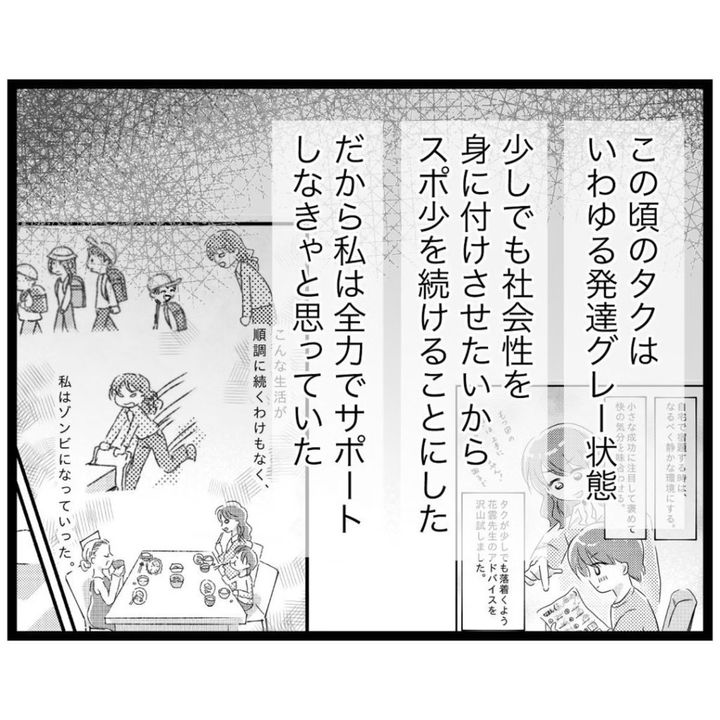 この頃のタクは
いわゆる発達グレー状態
少しでも社会性を
身に付けさせたいから
スポ少を続けることにした
だから私は全力でサポート
しなきゃと思っていた
自宅で宿題する時は、
なるべく静かな環境にする。
小さな成功に注目して褒めて
快の気分を味合わせる。
タクが少しでも落着くよう
花雲先生のアドバイスを
沢山試しました。
こんな生活が
順調に続くわけもなく、
私はゾンビになっていった。